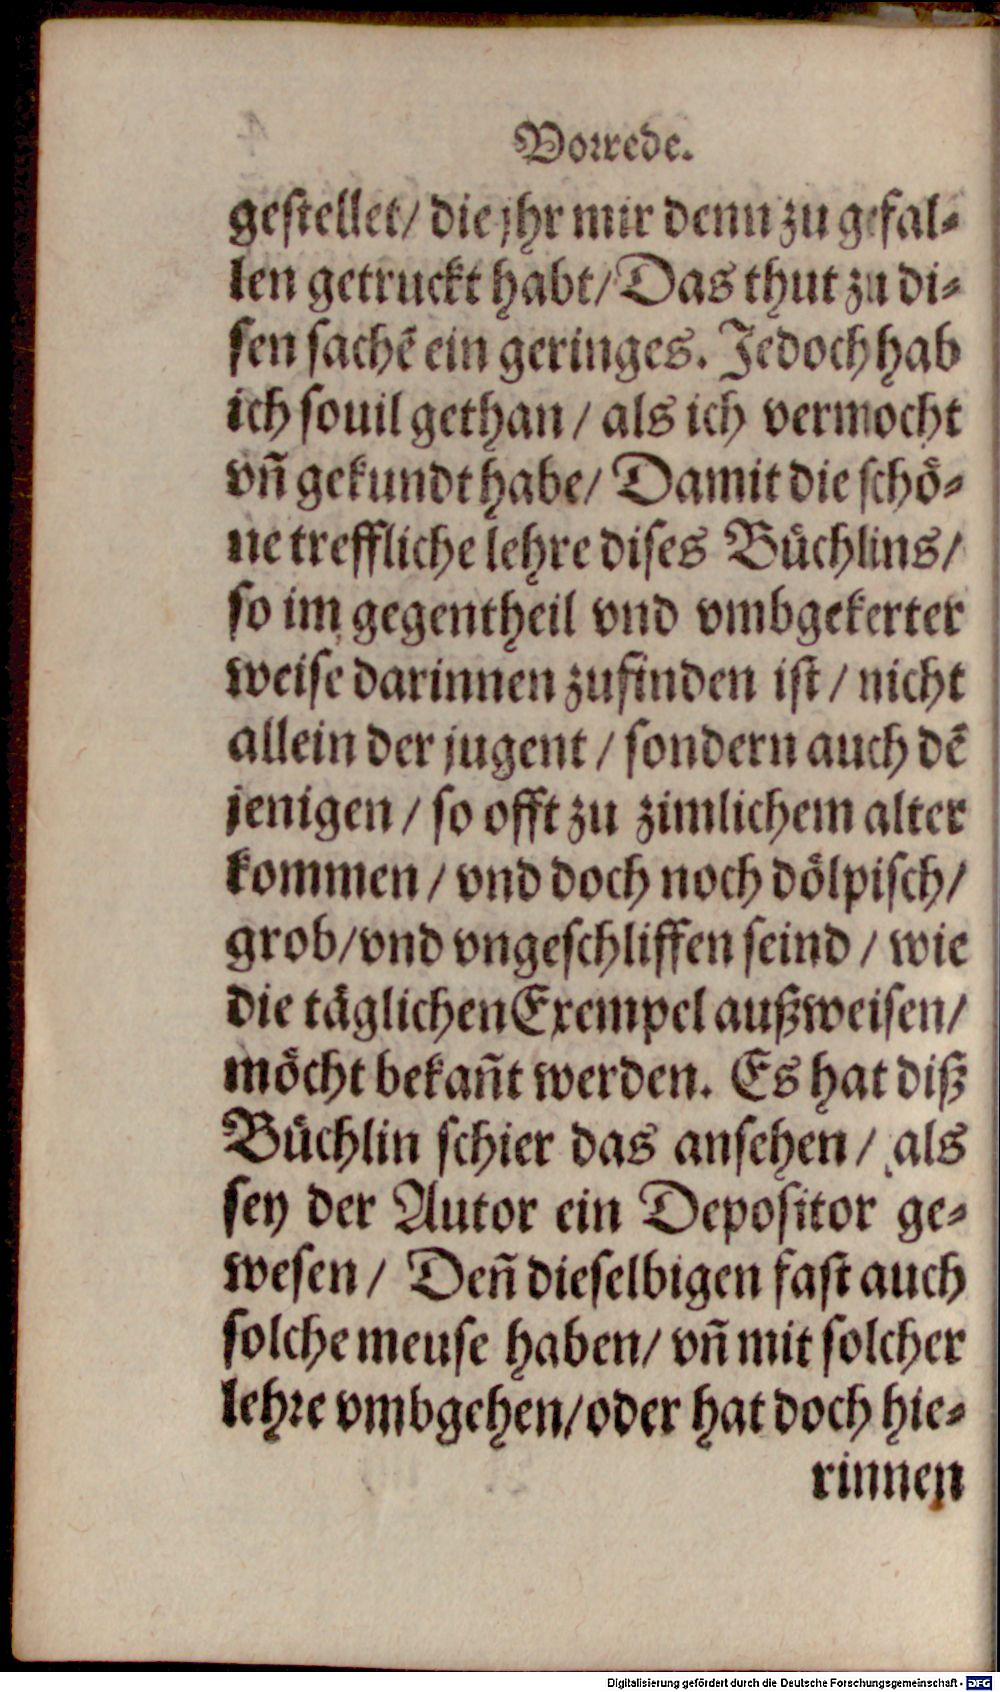 Vorrede.
gestellet/ die jhr mir denn zu gefal⸗
len getruckt habt/ Das thut zu di⸗
sen sachẽ ein geringes. Jedoch hab
ich souil gethan / als ich vermocht
vñ gekundt habe/ Damit die schoͤ⸗
ne treffliche lehre dises Buͤchlins/
so im gegentheil vnd vmbgekerter
weise darinnen zufinden ist / nicht
allein der jugent / sondern auch dẽ
jenigen / so offt zu zimlichem alter
kommen / vnd doch noch doͤlpisch/
grob/vnd vngeschliffen seind / wie
die taͤglichen Exempel außweisen/
moͤcht bekañt werden. Es hat diß
Buͤchlin schier das ansehen / als
sey der Autor ein Depositor ge⸗
wesen / Deñ dieselbigen fast auch
solche meuse haben/ vñ mit solcher
lehre vmbgehen/oder hat doch hie⸗
rinnen
Digitalisierung gefördert durch die Deutsche Forschungsgemeinschaft - DFG